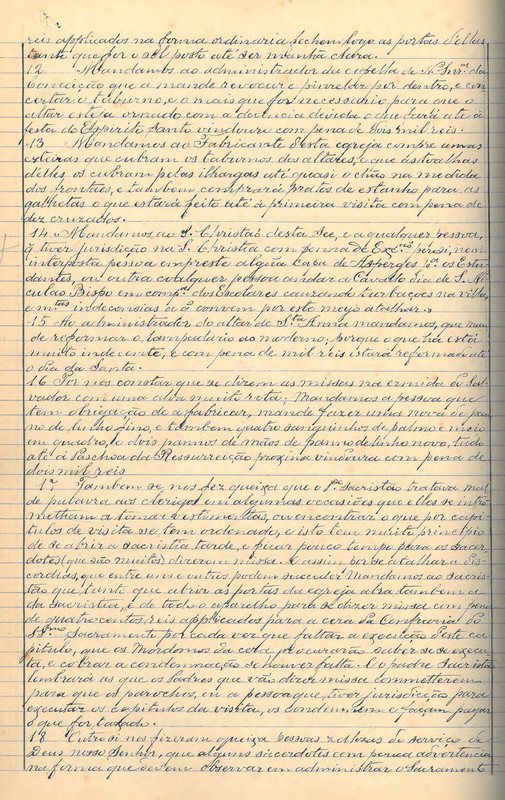 reis applicados na forma ordinaria fechem logo as portas dellas
tanto que for o sol posto até ser manhã clara.
12 Mandamos ao administrador da capella de N. Snr.ª da
Conceição que a mande revocar e pincelar por dentro, e con
certar o taburno, e o mais que for necessario para que o
altar esteja ornado com a decencia devida o que fará até á
festa do Espirito Santo vindoura com pena de dois mil reis.
13 Mandamos ao Fabricante desta egreja compre umas
esteiras que cubram os taburnos dos altares, e que as toalhas
delles os cubram pelas ilhargas até quasi o chão na medida
dos frontães, e tambem comprará pratos de estanho para as
galhetas o que estará feito até á primeira visita com pena de
dez cruzados.
14 Mandamos ao S. Christão desta See, e a qualquer pessoa,
q̃ tiver jurisdição na S. Christia com penna de Exc.
interposta pessoa empreste algũa Capa de Asperges p.ª os Estu
dantes, ou outra coalquer pessoa andar a Cavallo dia de S. Ni
culao Bispo em comp.ª dos Escolares cauzando turbações na villa,
e m.tas indecensias q̃ convem por este meyo atalhar.
15 Ao administrador do altar de S.ta Anna mandamos, que man
de reformar o lampadario ao moderno, porque o que há está
muito indecente, e com pena de mil reis estará reformado até
o dia da Santa.
16 Por nos constar que se dizem as missas na ermida do Sal
vador com uma alva muito rota; Mandamos a pessoa que
tem obrigação de a fabricar, mande fazer uma nova de pan
no de linho fino, e tambem quatro sanguinhos de palmo e meio
em quadro, e dois pannos de mãos de panno de linho novo, tudo
até á Paschoa da Ressurreição proxima vindoura com pena de
dois mil reis
17 Tambem se nos fez queixa que o P.e Sacristão tratava mal
de palavra aos clerigos em algumas occasiões que elles se intro
mettiam a tomar vestimentas, ou encontrar o que por capi
tulos de visita se tem ordenado, e isto tem muito principio
de se abrir a sacristia tarde, e ficar pouco tempo para os sacer
dotes (que são muitos) dizerem missa. E assim por se atalhar a dis
cordias, que entre uns e outros podem succeder Mandamos ao sacris
tão que, tanto que abrir as portas da egreja abra tambem a
da sacristia, e dê todo o aparelho para se dizer missa com pena
de quatrocentos reis applicados para a cera da Confraria do
SS.mo Sacramento por cada vez que faltar a execução deste ca
pitulo, que os Mordomos da cera procurarão saber se se execu
ta, e cobrar a condemnação se houver falta. E o padre Sacristão
lembrará as que os Padres que vão dizer missa commetterem
para que os parochos, ou a pessoa que tiver jurisdicção para
executar os capitulos da visita, os condemnem e façam pagar
o que for taxado.
18 Outro si nos fizeram queixa pessoas zellosas do serviço de
Deus nosso Senhor, que alguns sacerdotes com pouca advertencia
na forma que devem observar em administrar o Sacramento